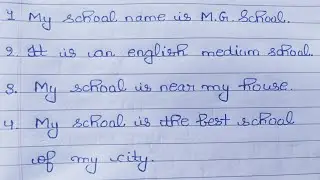 1. My school name is M.G. School.
2. It is an english medium school.
3. My school is near my house.
4. My school is the best school
of my city.